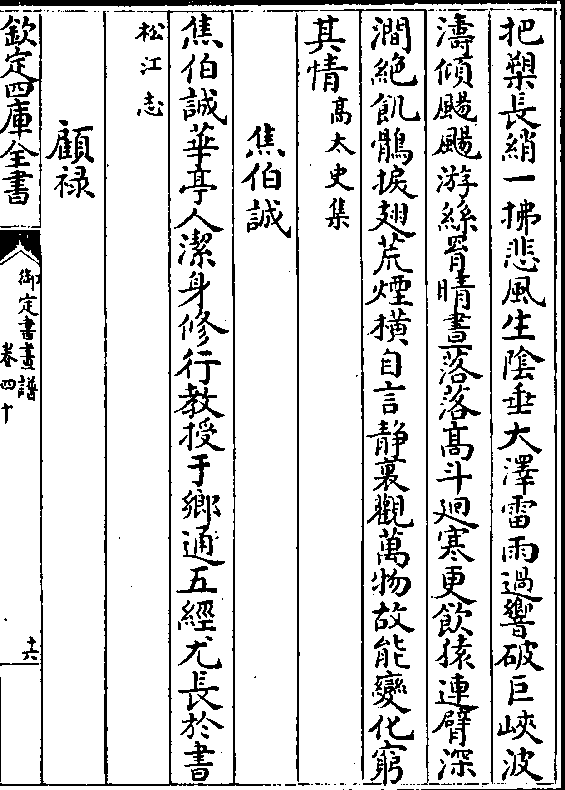 把槊長綃一拂悲風生陰垂大澤雷雨過響破巨峽波
濤傾颺颺游絲罥晴晝落落高斗廻寒更飲猿連臂深
澗絶飢鶻捩翅荒煙横自言静裏觀萬物故能變化窮
其情高太史集
焦伯誠
焦伯誠華亭人潔身修行教授于鄉通五經尤長於書
松江志
顧禄
欽定四庫全書
御定書畫譜
卷四十
十六